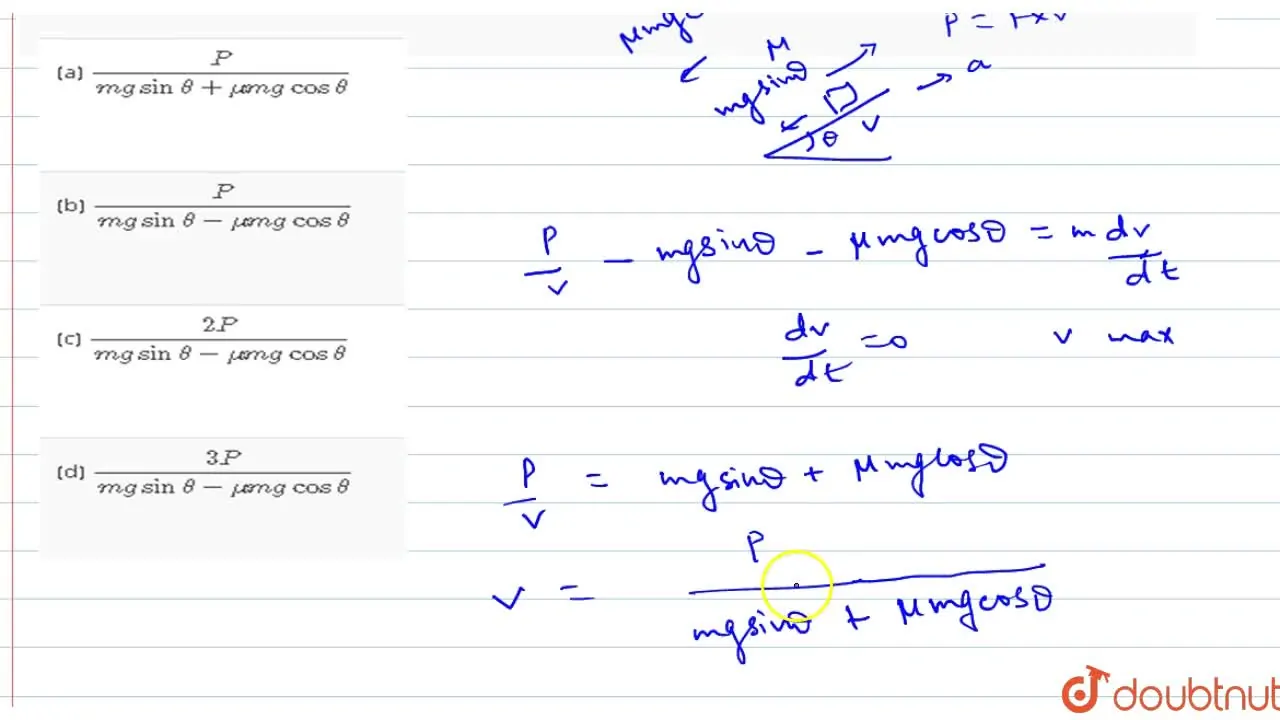 (a) P / (mg sin θ + μmg cos θ)
(b) P / (mg sin θ − μmg cos θ)
(c) 2P / (mg sin θ − μmg cos θ)
(d) 3P / (mg sin θ − μmg cos θ)
μ
mg sinθ
a
v
θ
P/v − mg sinθ − μmg cosθ = m dv/dt
dv/dt = 0 v max
P/v = mg sinθ + μmg cosθ
v = P / (mg sinθ + μmg cosθ)
doubtnut